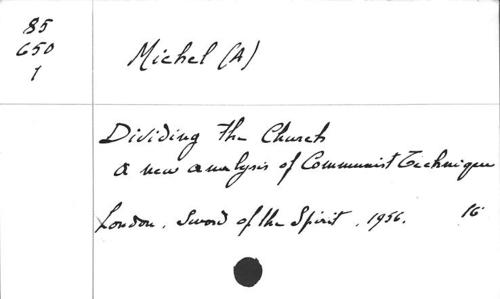 85
650
1
Michel (A)
Dividing the Church
a new analysis of Communist Technique
London. Sword of the Spirit, 1956. 16